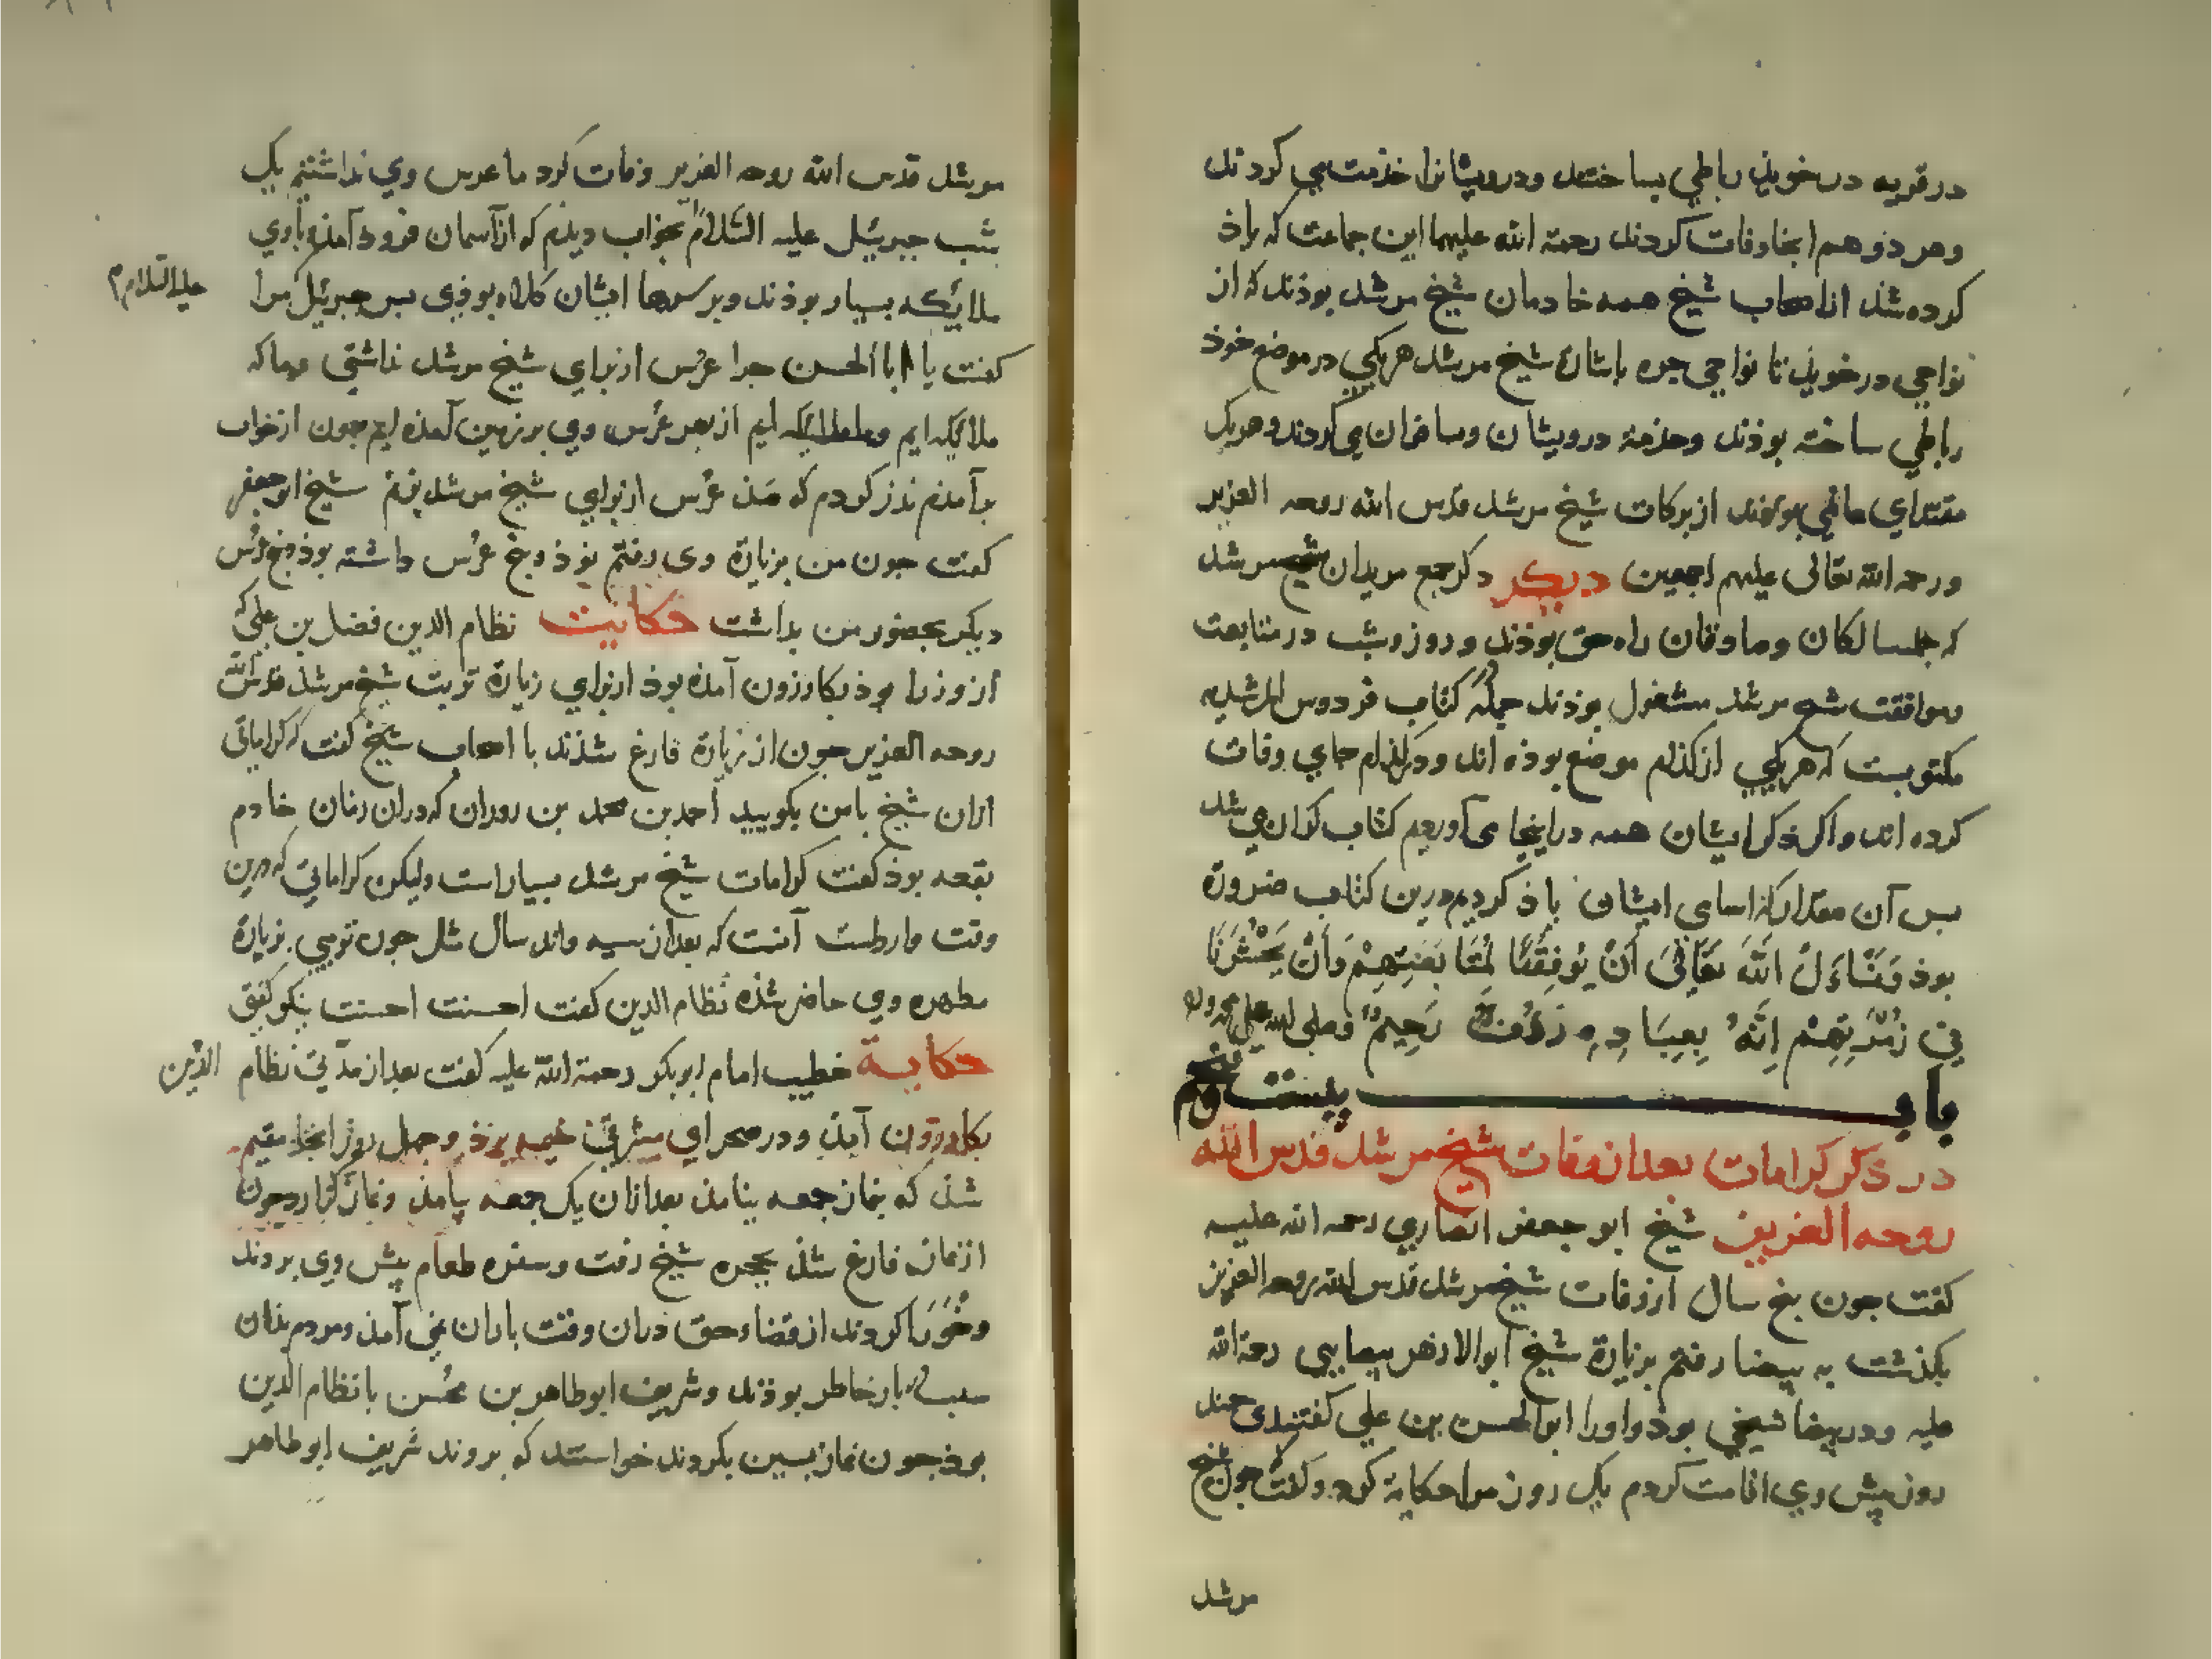 در قریه درخویذ رباطی بساختند و درویشانرا خذمت می کردند
و هر دو هم انجا وفات کردند رحمة الله علیهما این جماعت که یاذ
کرده شد از اصحاب شیخ همه خادمان شیخ مرشد بوذند که از
نواحی درخویذ تا نواحی جره باشارة شیخ مرشد هر یکی در موضع خوذ
رباطی ساخته بوذند و خذمة درویشان و مسافران می کردند و هر یک
مقتدای بوذند از برکات شیخ مرشد قدس الله روحه العزیز
و رحمة الله تعالی علیهم اجمعین دیکر ذکر جمع مریدان شیخ مرشد
که جمله سالکان و صادقان راه حق بوذند و روز و شب در متابعت
و موافقت شیخ مرشد مشغول بوذند جمله کتاب فردوس المرشدیه
مکتوبست که هر یکی از کذام موضع بوذه اند و در کذام جای وفات
کرده اند و اکر ذکر ایشان همه در اینجا می آوردیم کتاب کران می شد
بس آن مقدار که اسامی ایشان یاذ کردیم درین کتاب ضرورة
بوذ وَنَسْاَلُ اللَّهَ تَعَالَی اَنْ یُوَفِّقَنَا لِمُتَابَعَتِهِمْ وَاَنْ یَحْشُرَنَا
فِی زُمْرَتِهِمْ اِنَّهُ بِعِبَادِهِ رَؤُفٌ رَحِیمٌ وصلی الله علی محمد وآله
باب بیست و نهم
در ذکر کرامات بعد از وفات شیخ مرشد قدس الله
روحه العزیز شیخ ابو جعفر انصاری رحمة الله علیه
کفت جون بنج سال از وفات شیخ مرشد قدس الله روحه العزیز
بکذشت به بیضا رفتم بزیارة شیخ ابوالازهر بیضایی رحمة الله
علیه و در بیضا شیخی بوذ و او را ابوالحسن بن علی کفتندی جند
روز بیش وی اقامت کردم یک روز مرا حکایة کرد و کفت جون شیخ
مرشد
مرشد قدس الله روحه العزیز وفات کرد ما عرس وی نداشتیم یک
شب جبرییل علیه السّلام بخواب دیذم که از آسمان فروذ آمذ و با وی
ملایکه بسیار بوذند و بر سرهاء ایشان کلاه بوذی بس جبرئیل مرا
علیه السلام
کفت یا ابا الحسن جرا عرس از برای شیخ مرشد نداشتی و ما که
ملایکه ایم از بهر عرس وی بر زمین آمذه ایم جون از خواب
برآمذم نذر کردم که صذ عرس از برای شیخ مرشد بزنم شیخ ابوجعفر
کفت جون من بزیارة وی رفتم نوذ و بنج عرس داشته بوذ و بنج عرس
دیکر بحضور من بداشت حکایت نظام الدین فضل بن علی که
از وزرا بوذ بکازرون آمذه بوذ از برای زیارة تربت شیخ مرشد قدس الله
روحه العزیز جون از زیارة فارغ شذند با اصحاب شیخ کفت که کراماتی
ازان شیخ با من بکویید احمد بن محمد بن روزان که دران زمان خادم
بقعه بوذ کفت کرامات شیخ مرشد بسیار است ولیکن کراماتی که درین
وقت آنست که بعد از سیصد و اند سال مثل جون تویی بزیارة
مطهره وی حاضر شذه نظام الدین کفت احسنت احسنت نیکو کفتی
حکایة خطیب امام ابوبکر رحمة الله علیه کفت بعد از مدّتی نظام الدّین
بکازرون آمذ و در صحرای شرقی خیمه بزذ و جهل روز انجا مقیم
شذ که بنماز جمعه نیامذ بعد ازان یک جمعه بیامذ و نماز کزارد جون
از نماز فارغ شذ بحجره شیخ رفت و سفره طعام بیش وی بردند
و خوردند از قضاء حق دران وقت باران نمی آمذ و مردم بذان
سبب بار خاطر بوذند و شریف ابوطاهر بن محسن با نظام الدین
بوذ جون نماز بسین بکردند خواستند که بروند شریف ابوطاهر